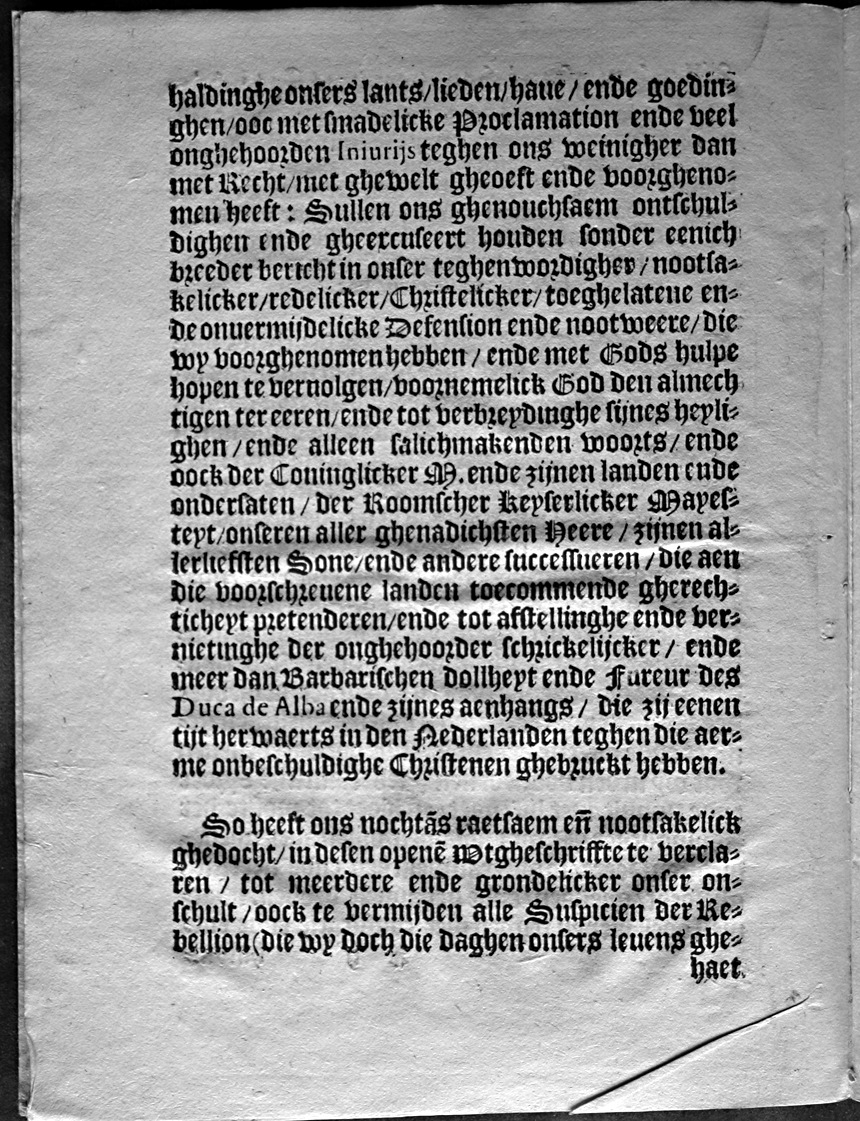 haldinghe onsers lants/lieden/haue/ ende goedin⸗
ghen/ooc met smadelicke Proclamation ende veel
onghehoorden Iniurijs teghen ons weinigher dan
met Recht/met ghewelt gheoeft ende voorgheno⸗
men heeft: Sullen ons ghenouchsaem ontschul⸗
dighen ende gheercuseert houden sonder eenich
breeder bericht in onser teghenwordigher/nootsa⸗
kelicker/redelicker/Christelicker/toeghelatene en⸗
de onuermijdelicke Defension ende nootweere/die
wy voorghenomen hebben/ ende met Gods hulpe
hopen te veruolgen/voornemelick God den almech
tigen ter eeren/ende tot verbreydinghe sijnes heyli⸗
ghen/ende alleen salichmakenden woorts/ ende
oock der Coninglicker M. ende zijnen landen ende
ondersaten/ der Roomscher Keyserlicker Mayes⸗
teyt/onseren aller ghenadichsten Heere/ zijnen al⸗
lerliefsten Sone/ende andere successueren/die aen
die voorschreuene landen toecommende gherech⸗
ticheyt pretenderen/ende tot afstellinghe ende ver⸗
nietinghe der onghehoorder schrickelijcker/ ende
meer dan Barbarischen dollheyt ende Fureur des
Duca de Alba ende zijnes aenhangs/ die zij eenen
tijt herwaerts in den Nederlanden teghen die aer⸗
me onbeschuldighe Christenen ghebruckt hebben.
So heeft ons nochtãs raetsaem eñ nootsakelick
ghedocht/in desen openẽ Wtgheschriffte te vercla⸗
ren/ tot meerdere ende grondelicker onser on⸗
schult/oock te vermijden alle Suspicien der Re⸗
bellion(die wy doch die daghen onsers leuens ghe⸗
haet